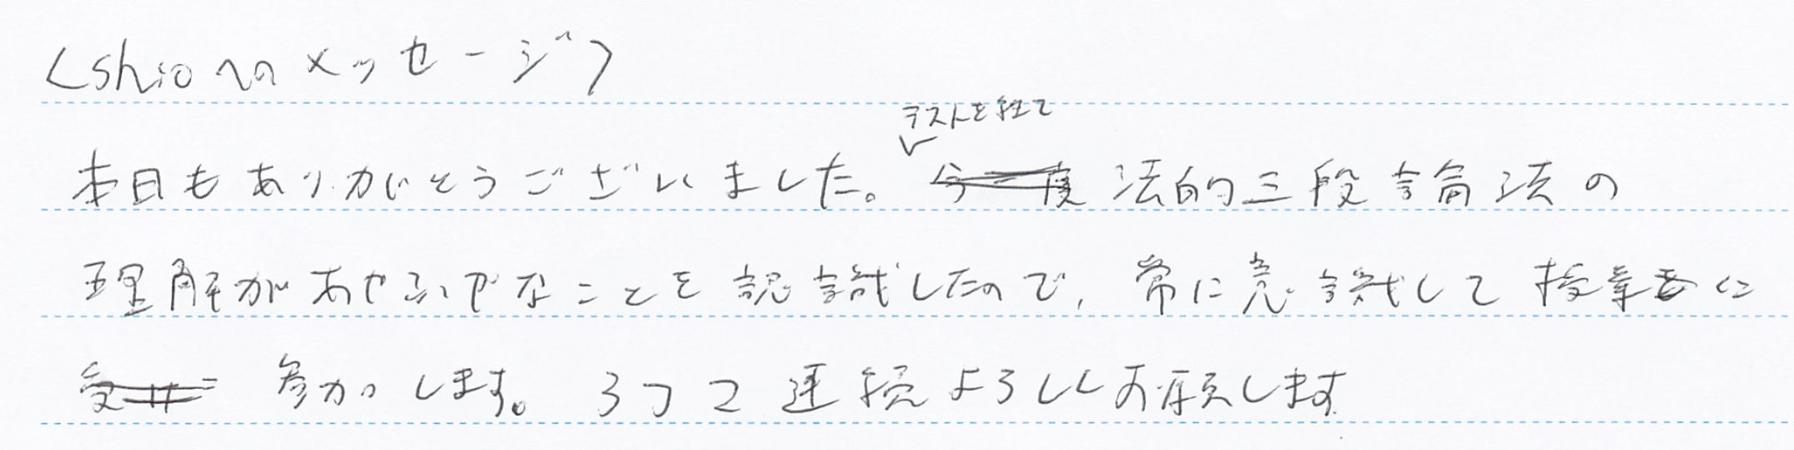 <shioへのメッセージ>
テストを経て
本日もありがとうございました。今一度 法的三段論法の
理解があやふやなことを認識したので、常に意識して授業に
参加します。 連続よろしくお願します